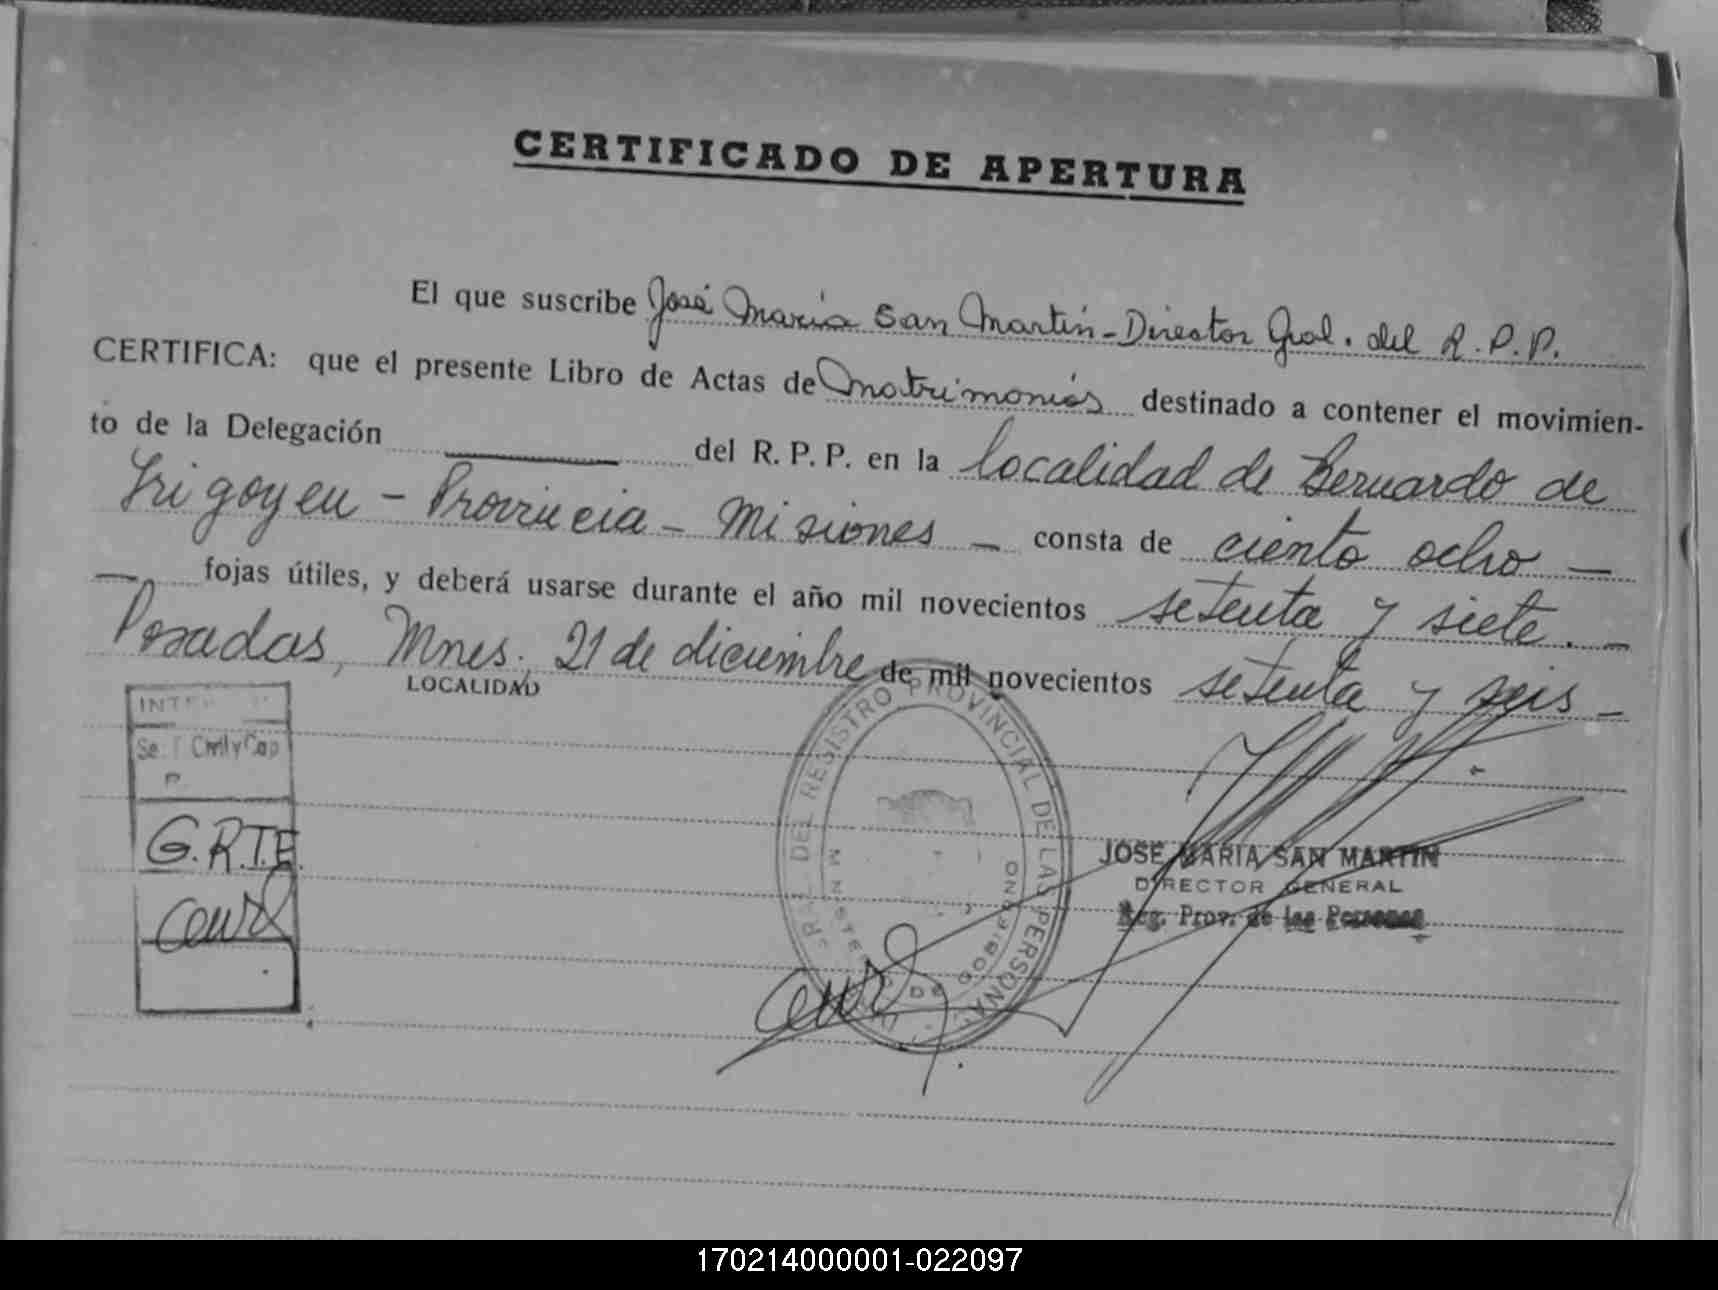 CERTIFICADO DE APERTURA
El que suscribe José María San Martín - Director Gral. del R.P.P.
CERTIFICA: que el presente Libro de Actas de Matrimonios destinado a contener el movimien-
to de la Delegación del R. P. P. en la localidad de Bernardo de
Irigoyen - Provincia - Misiones - consta de ciento ocho -
- fojas útiles, y deberá usarse durante el año mil novecientos setenta y siete. -
Posadas, Mnes. 21 de diciembre de mil novecientos setenta y seis -
LOCALIDAD
Civil y Cap
G.R.T.E.
DEL REGISTRO PROVINCIAL DE LAS PERSONAS
DE GOBIERNO
JOSE MARIA SAN MARTIN
DIRECTOR GENERAL
Reg. Prov. de las Personas
170214000001-022097